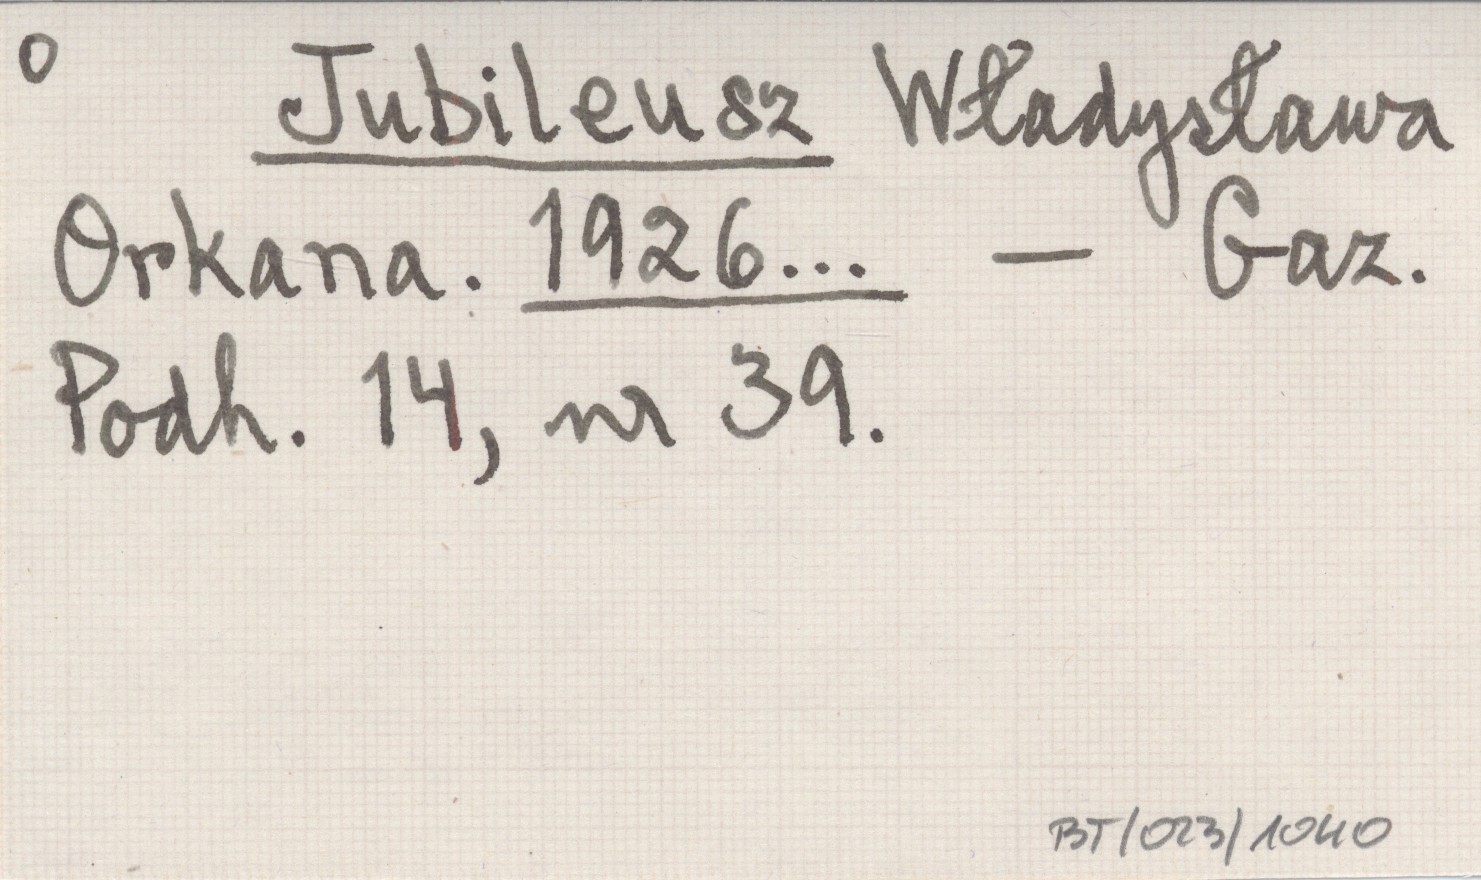 o Jubileusz Władysława
Orkana. 1926... — Gaz.
Podh. 14, nr 39.
BT/023/1040